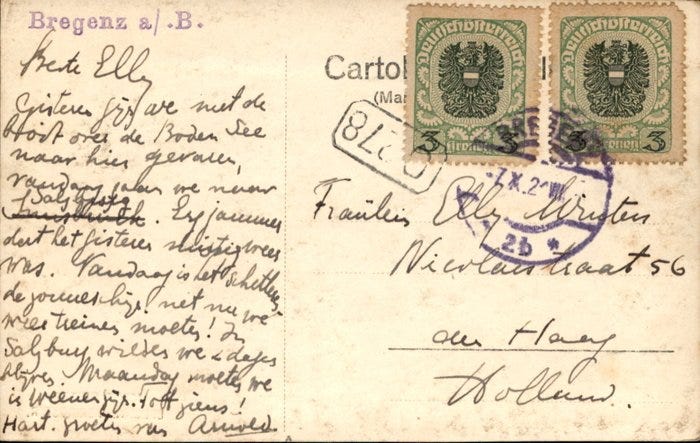 Bregenz a/.B.
Beste Elly
Gisteren zijn we met de
boot over de Boden See
naar hier gevaren,
vandaag gaan we naar
Salzburg
Innsbruck. Erg jammer
dat het gisteren mistig weer
was. Vandaag is het schitterende
zonneschijn, net nu we
weer treinen moeten! In
Salzburg wilden we 2 dagen
blijven. Maandag moeten we
in Weenen zijn. Tot ziens!
Hart. groeten van Arnold
Cartol
(Mar
0278
Deutschösterreich
3
3
Kronen
Deutschösterreich
3
3
Kronen
BREGENZ
2b *
Fräulein Elly
Nicolaistraat 56
den Haag
Holland.